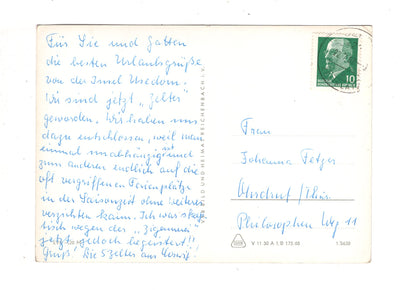 Für Sie und Gatten
die besten Urlaubsgrüße
von der Insel Usedom.
Wir sind jetzt „Zelter"
geworden. Wir haben uns
dazu entschlossen, weil man
einmal unabhängig ist und
zum anderen endlich auf die
oft vergriffenen Ferienplätze
in der Saisonzeit ohne weiteres
verzichten kann. Ich war skep-
tisch wegen der „Zigeunerei"
jetzt jedoch begeistert!!
Gruß! Die 5 Zelter aus
VEB BILD UND HEIMAT REICHENBACH I. V.
10
Frau
Johanna Fetzer
Ohrdruf/Thür.
Philosophen Weg 11
V 11 50 A 1